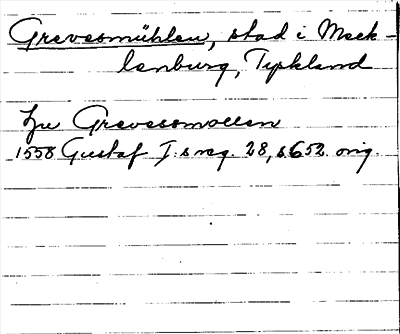 Grevesmühlen, stad i Meck-
lenburg, Tyskland
Zu Grevessmollen
1558 Gustaf I:s reg. 28, s 652. orig.